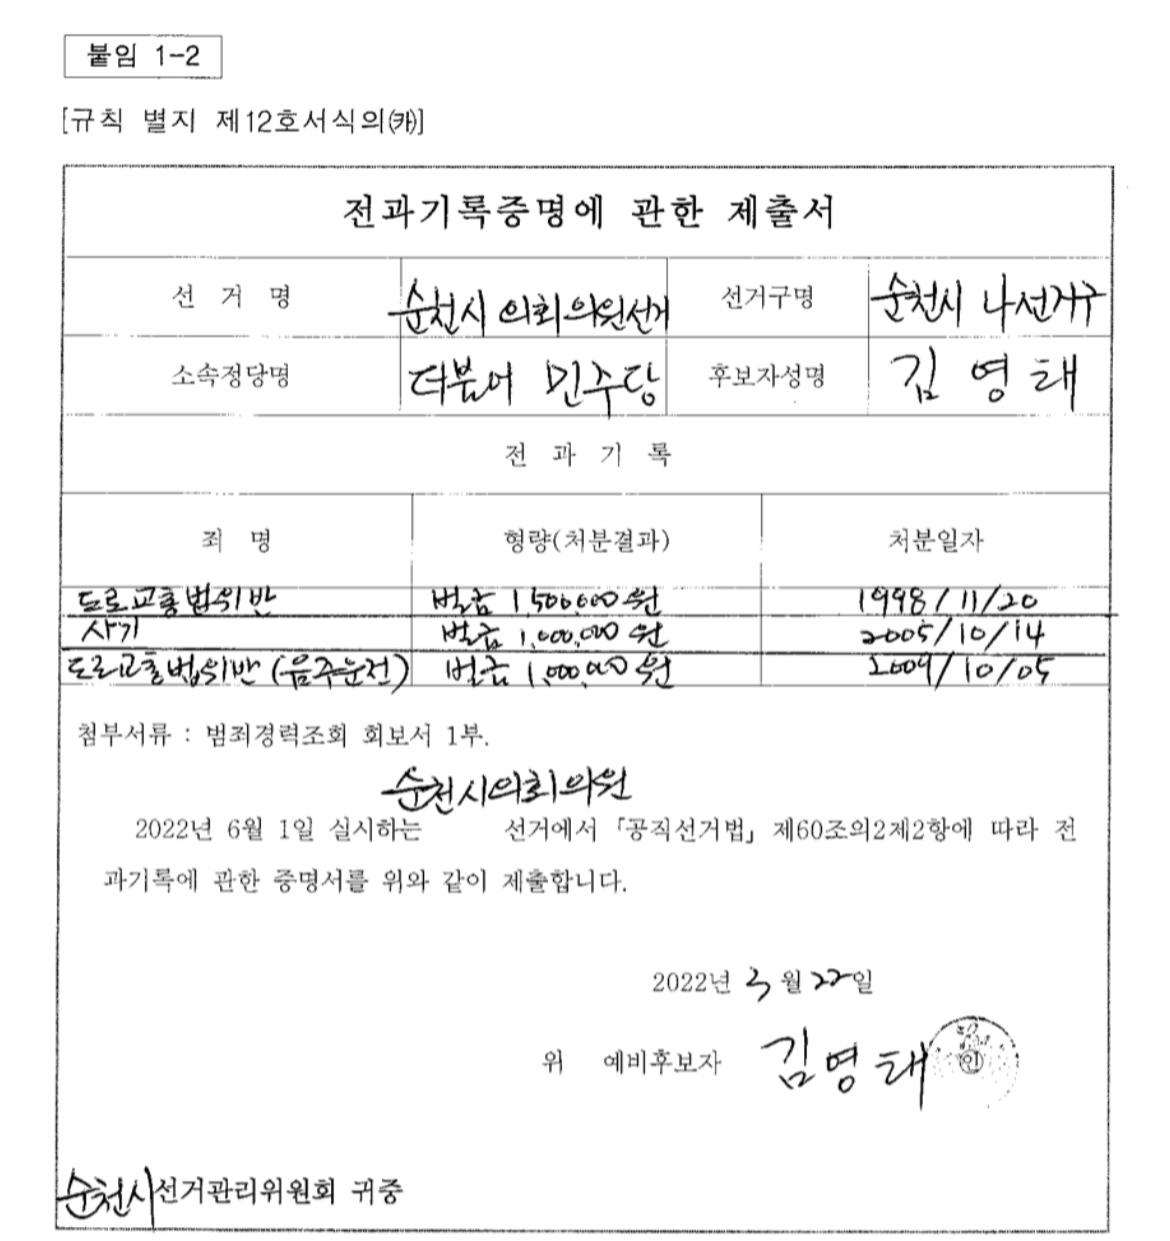 붙임 1-2
[규칙 별지 제12호서식의㈕]
전과기록증명에 관한 제출서
선 거 명 순천시의회의원선거 선거구명 순천시 나선거구
소속정당명 더불어 민주당 후보자성명 김영태
전 과 기 록
죄 명 형량(처분결과) 처분일자
도로교통법위반 벌금 1,500,000원 1998/11/20
사기 벌금 1,000,000원 2005/10/14
도로교통법위반(음주운전) 벌금 1,000,000원 2009/10/05
첨부서류 : 범죄경력조회 회보서 1부.
순천시의회의원
2022년 6월 1일 실시하는 선거에서 「공직선거법」 제60조의2제2항에 따라 전
과기록에 관한 증명서를 위와 같이 제출합니다.
2022년 3월 22일
위 예비후보자 김영태 ㊞
순천시선거관리위원회 귀중